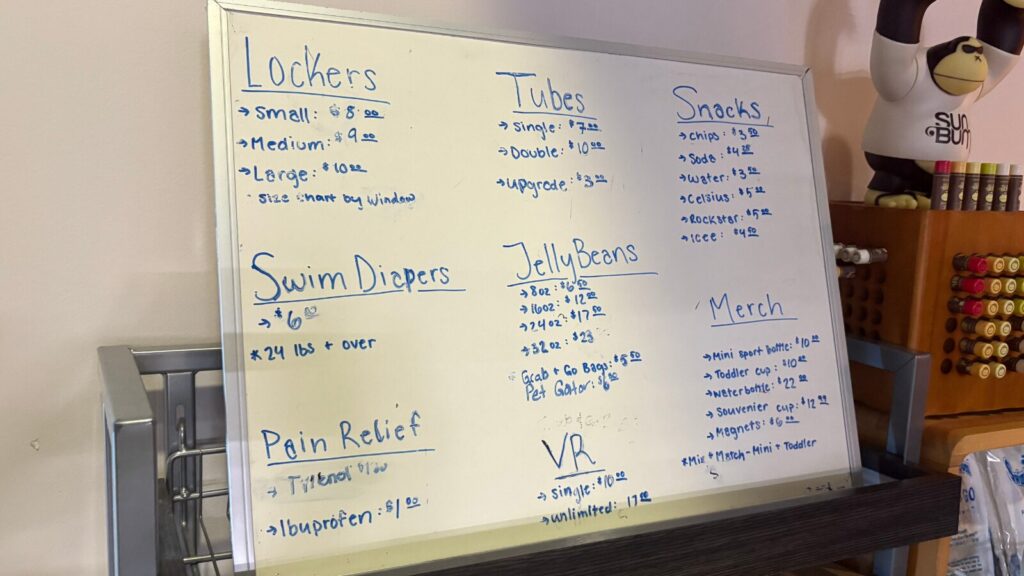 Lockers
→ Small: $8.00
→ Medium: $9.00
→ Large: $10.00
Size chart by window
Swim Diapers
→ $6.00
*24 lbs + over
Pain Relief
→ Tylenol
→ Ibuprofen: $1.00
Tubes
→ Single: $7.00
→ Double: $10.00
→ upgrade: $3.00
JellyBeans
→ 8oz: $6.50
→ 16oz: $12.00
→ 24oz: $17.50
→ 32oz: $23
Grab + Go Bags: $5.50
Pet Gator: $6.00
VR
→ Single: $10.00
→ unlimited: 17.00
Snacks
→ chips: $3.50
→ Soda: $4.25
→ Water: $3.50
→ Celsius: $5.00
→ Rockstar: $5.00
→ Icee: $4.50
Merch
→ Mini sport bottle: $10.00
→ Toddler cup: $10.00
→ Waterbottle: $22.00
→ Souvenier cup: $12.99
→ Magnets: $6.00
*Mix + Match-Mini + Toddler
SUN
BUM